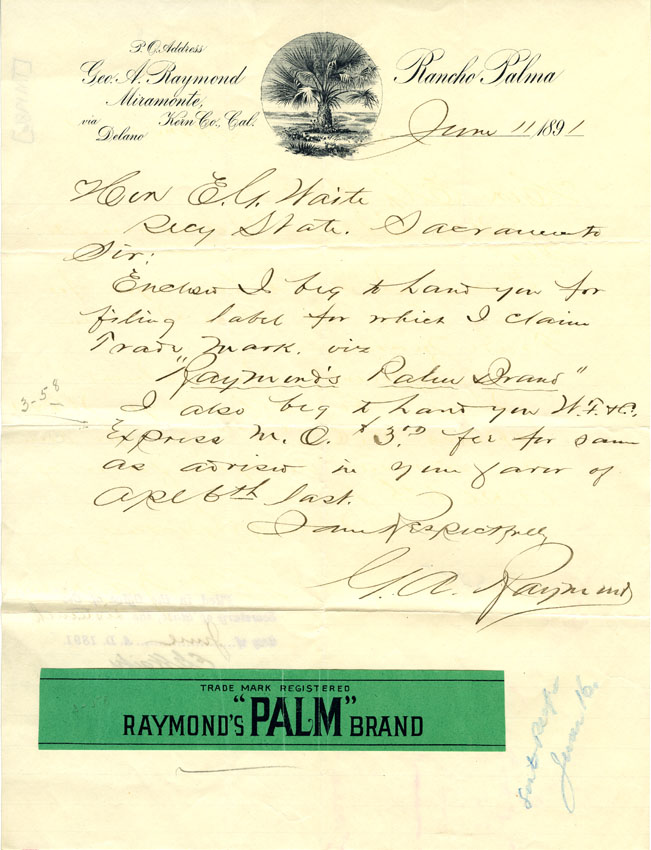 P.O. Address
Geo. A. Raymond
Miramonte,
via Kern Co., Cal.
Delano
Rancho Palma
June 11 1891
Hon E. G. Waite
Secy State. Sacramento
Sir:
Enclosed I beg to hand you for
filing label for which I claim
Trade Mark. viz
"Raymond's Palm Brand"
3-58
I also beg to hand you W.F.&Co.,
Express M.O. $3.00 fee for same
as advised in your favor of
Apl 6th last.
I am Respectfully
G. A. Raymond
Filed in the Office of the
Secretary of State, the
day of June A. D. 1891
TRADE MARK REGISTERED
RAYMOND'S "PALM" BRAND
June 16.